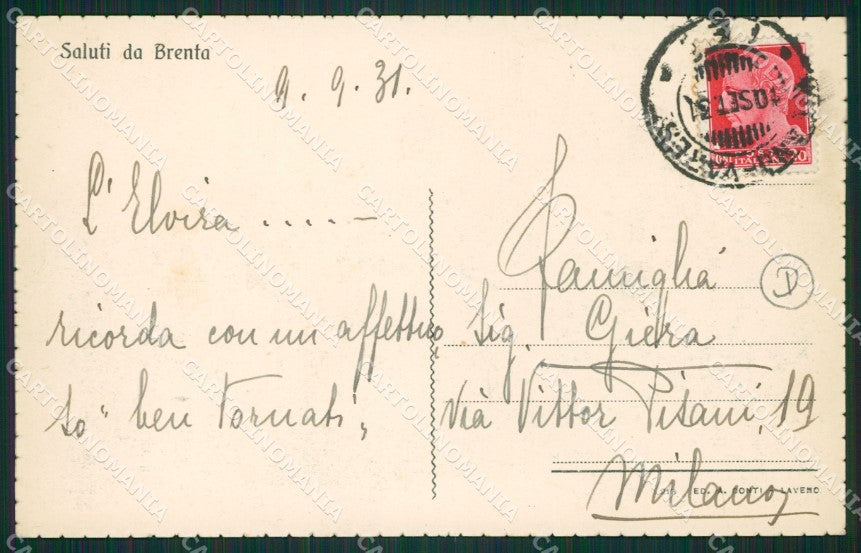 Saluti da Brenta
9. 9. 31.
L'Elvira .....–
ricorda con un affettuo
so "ben tornati",
Famiglia
Sig. Giera
Via Vittor Pisani, 19
Milano
ED. A. CONTI - LAVENO
10 SET. 31
VARESE
D
CARTOLINOMANIA